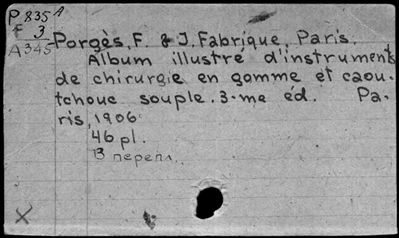 P 835 A
F 3
A 345
Porgès, F. & J. Fabrique, Paris.
Album illustré d'instruments
de chirurgie en gomme et caou-
tchouc souple. 3-me éd. Pa-
ris, 1906.
46 pl.
В перепл.
X